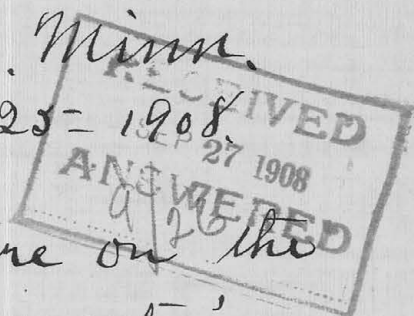 Minn.
25 - 1908.
RECEIVED
SEP 27 1908
ANSWERED
9/26
re on the